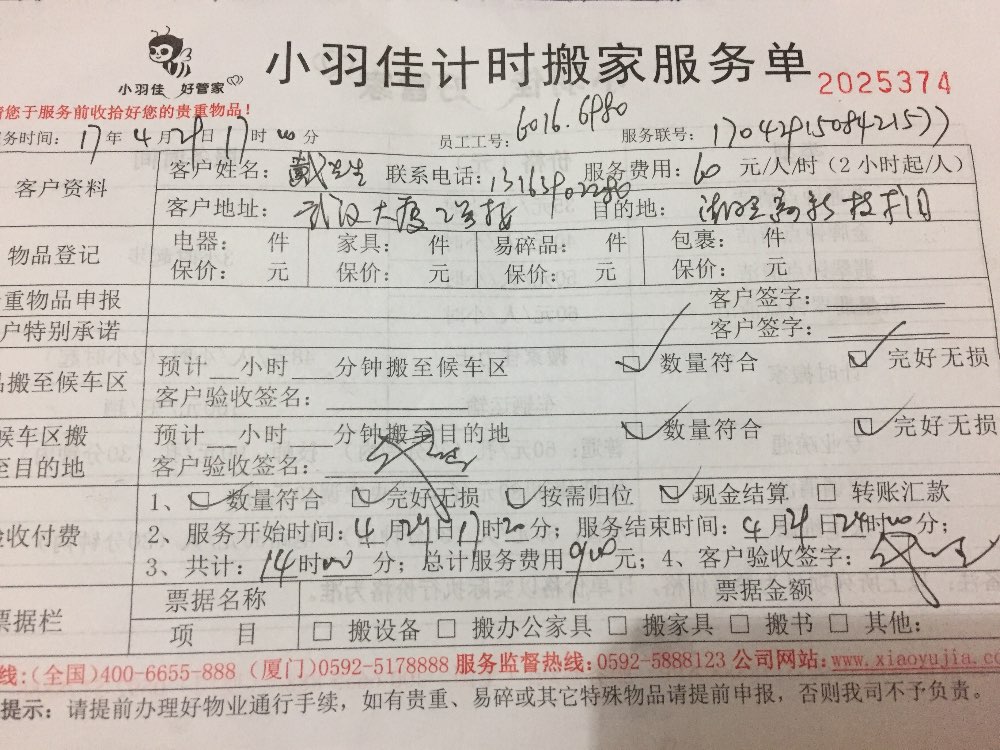 小羽佳 好管家
小羽佳计时搬家服务单 2025374
请您于服务前收拾好您的贵重物品!
务时间: 17年4月29日17时00分 员工工号: 6016.6980 服务联号: 17042915084215
客户资料 客户姓名: 戴先生 联系电话: 服务费用: 60 元/人/时 (2小时起/人)
客户地址: 武汉大厦 目的地: 技术
物品登记 电器: 件 家具: 件 易碎品: 件 包裹: 件
保价: 元 保价: 元 保价: 元 保价: 元
重物品申报 客户签字:
户特别承诺 客户签字:
品搬至候车区 预计__小时___分钟搬至候车区 ☑ 数量符合 ☑ 完好无损
客户验收签名:
候车区搬 预计__小时___分钟搬至目的地 ☑ 数量符合 ☑ 完好无损
至目的地 客户验收签名:
验收付费 1、☑ 数量符合 ☑ 完好无损 ☑ 按需归位 ☑ 现金结算 □ 转账汇款
2、服务开始时间: 4月29日17时20分; 服务结束时间: 4月29日24时00分;
3、共计: 14时00分; 总计服务费用900元; 4、客户验收签字:
票据栏 票据名称 票据金额
项 目 □ 搬设备 □ 搬办公家具 □ 搬家具 □ 搬书 □ 其他:
线:(全国)400-6655-888 (厦门)0592-5178888 服务监督热线:0592-5888123 公司网站:www.xiaoyujia.co
提示: 请提前办理好物业通行手续, 如有贵重、易碎或其它特殊物品请提前申报, 否则我司不予负责。